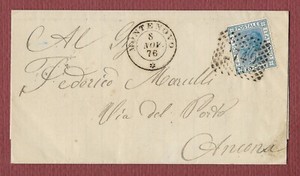 MONTENOVO
8
NOV.
76
Al
Federico Morulli
Via del Porto
Ancona